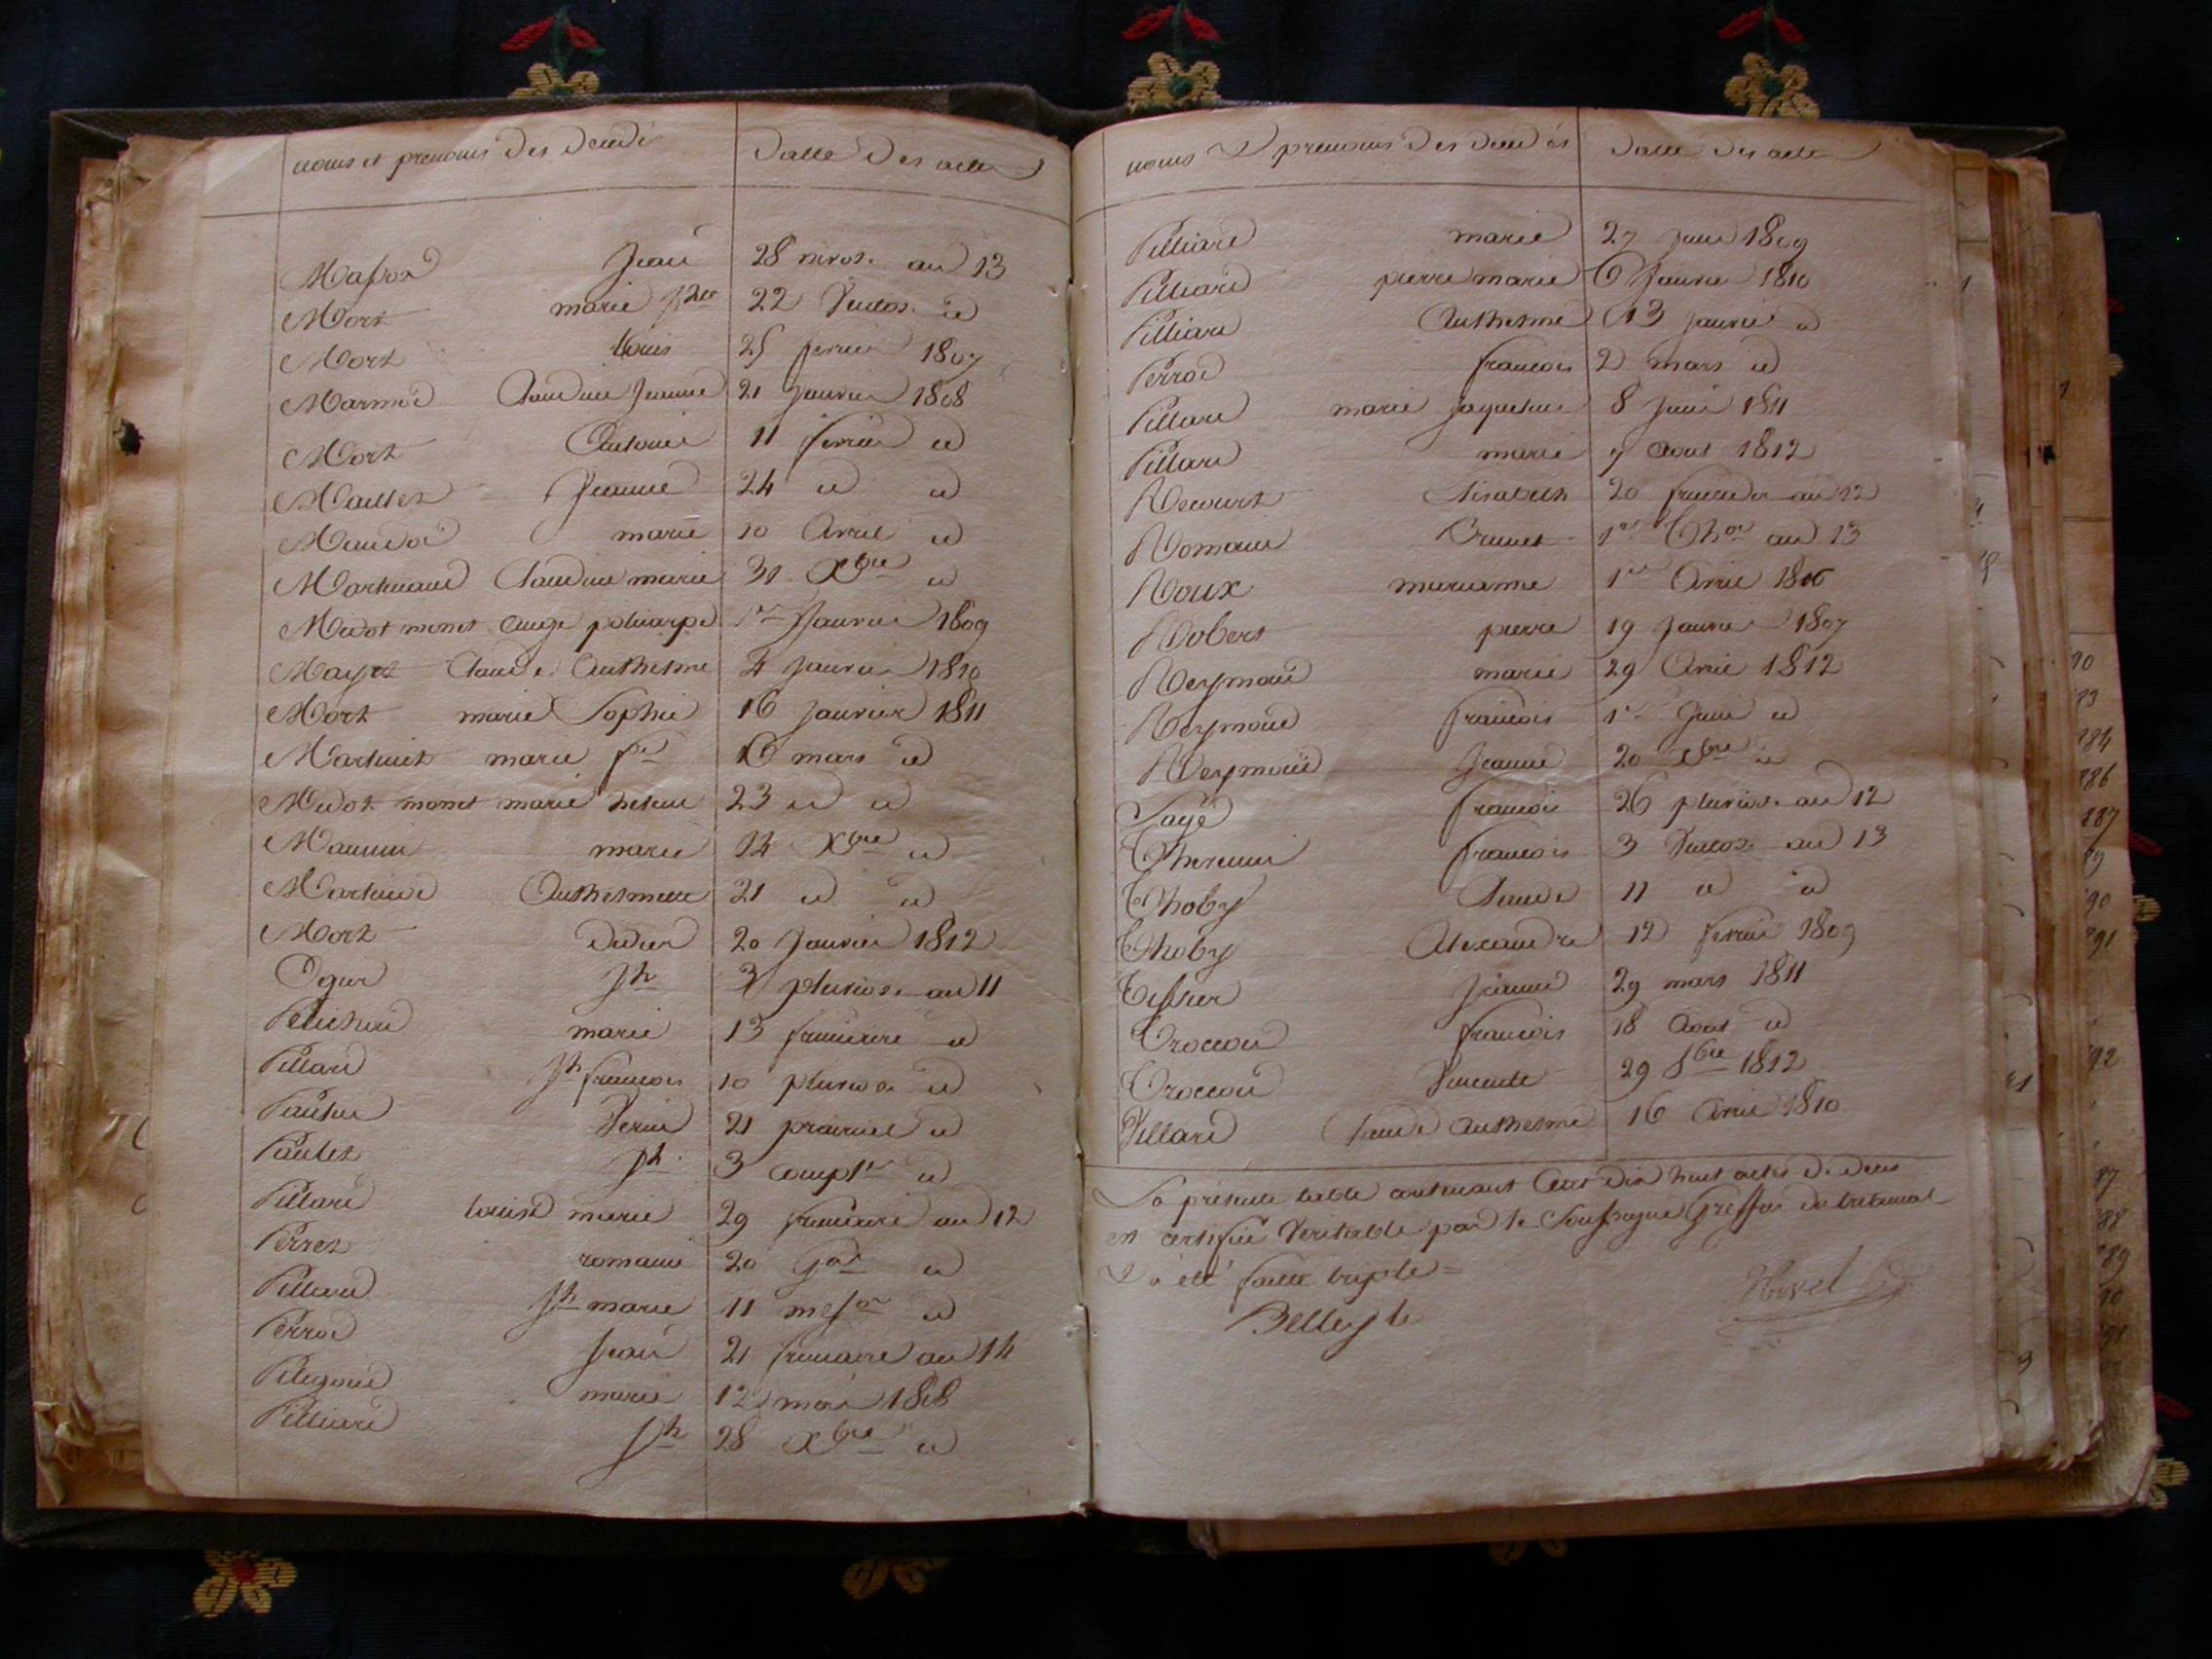 noms et prenoms des decedé
datte des actes
Masson Jean 28 nivos. an 13
Mort marie 22 Ventos. id
Mort Louis 25 fevrier 1807
Marmod Claudine Jeanne 21 Janvier 1808
Mort Antoine 11 fevrier id
Maullet Jeanne 24 id id
marie 10 Avril id
Martinand Claudine marie 31 Xbre id
Midot monet Ange policarpe 1er Janvier 1809
Claude Anthelme 4 Janvier 1810
Mort marie Sophie 16 Janvier 1811
Martinet marie fse 16 mars id
Midot monet marie helene 23 id id
marie 14 Xbre id
Martinod Anthelmette 21 id id
Mort Didier 20 Janvier 1812
Ogier Jh 3 pluvios. an 11
marie 13 frimaire id
Pillard Jh francois 10 pluvios id
21 prairial id
Paulet Jh 3 compre id
Pillard louise marie 29 frimaire an 12
Perret romain 20 id
Pilliard Jh marie 11 messor id
Perrod Jean 21 frimaire an 14
marie 12 mai 1808
Pilliard Jh 28 Xbre id
noms & prenoms des decedés
datte des acte
Pilliard marie 27 Juin 1809
Pilliard pierre marie 6 Janvier 1810
Pilliard Anthelme 13 Janvier id
Perrod francois 2 mars id
Pillard marie Jaqueline 8 Juin 1811
Pillard marie 7 Aout 1812
Recourt Elisabeth 20 an 12
Romain 1er Thor an 13
Roux marianne 1er Avril 1806
Robert pierre 19 Janvier 1807
Reymond marie 29 Avril 1812
Reymond francois 1er Juin id
Reymond Jeanne 20 Xbre id
Sage francois 26 pluvios. an 12
Thevenin francois 3 Ventos. an 13
Thoby Claude 11 id id
Thoby Alexandre 12 fevrier 1809
Tissier Jeanne 29 mars 1811
Troccon francois 18 Aout id
Troccon Vincente 29 8bre 1812
Villard Claude Anthelme 16 Avril 1810
La présente table contenant Cent dix huit actes de deces
est certifiée Veritable par le Soussigné Greffier du tribunal
& a été faitte triple
Belley le